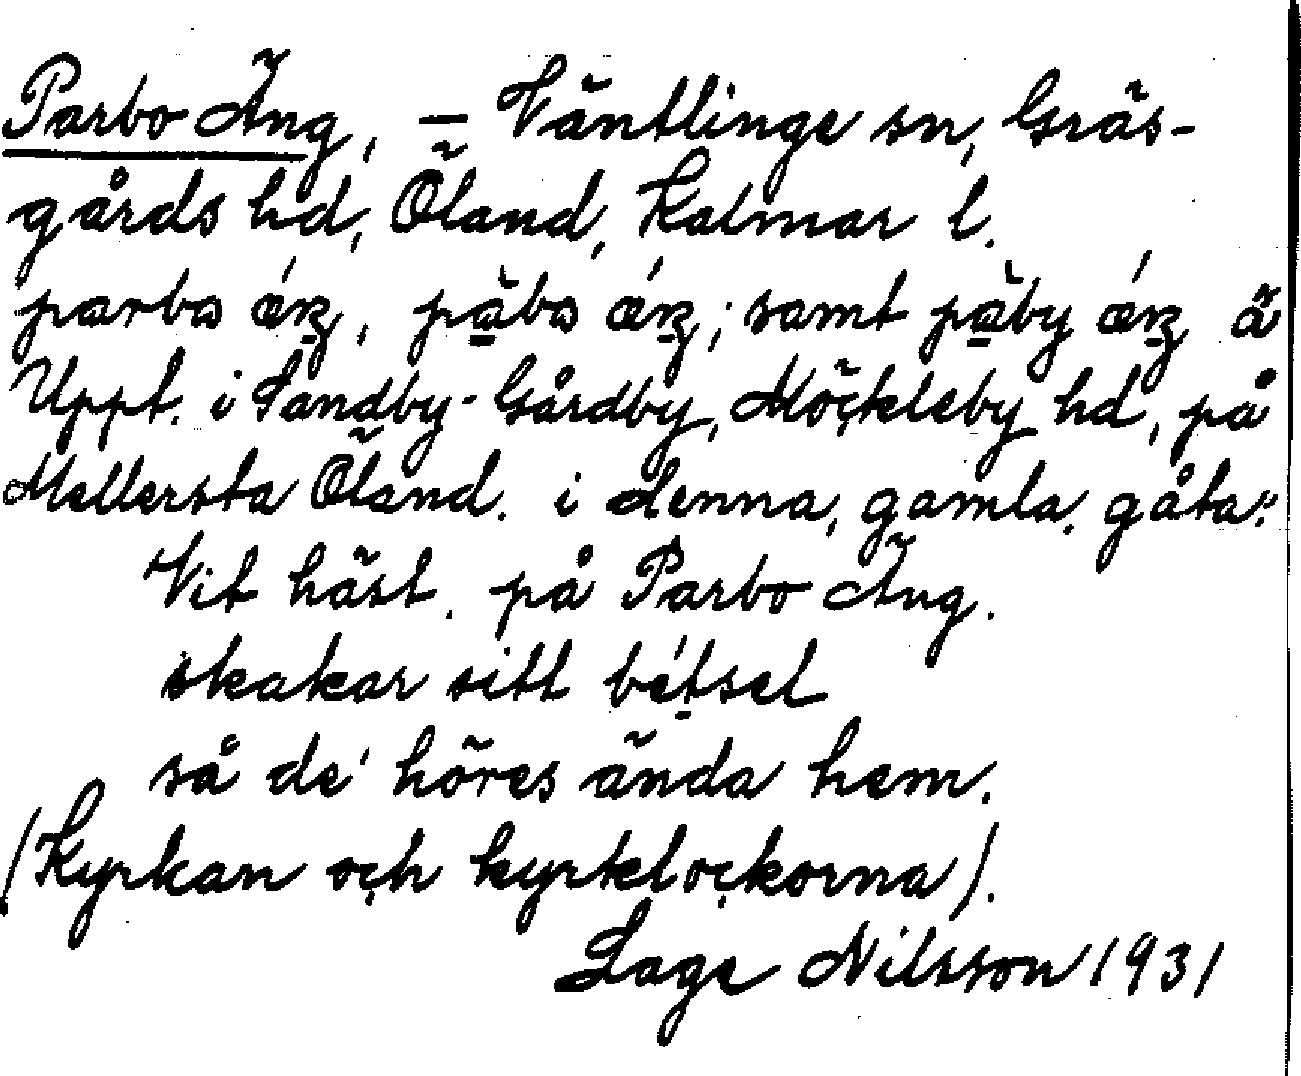 Parbo Äng, – Väntlinge sn, Gräs-
gårds hd, Öland, Kalmar l.
parbo ǽŋ, päbo ǽŋ; samt päby ǽŋ ä
Uppt. i Sandby-Gårdby, Möckleby hd, på
Mellersta Öland. i denna, gamla. gåta:"
Vit häst. på Parbo Äng.
skakar sitt bétsel
så de' höres ända hem.
(Kyrkan och kyrklockorna).
Lage Nilsson 1931